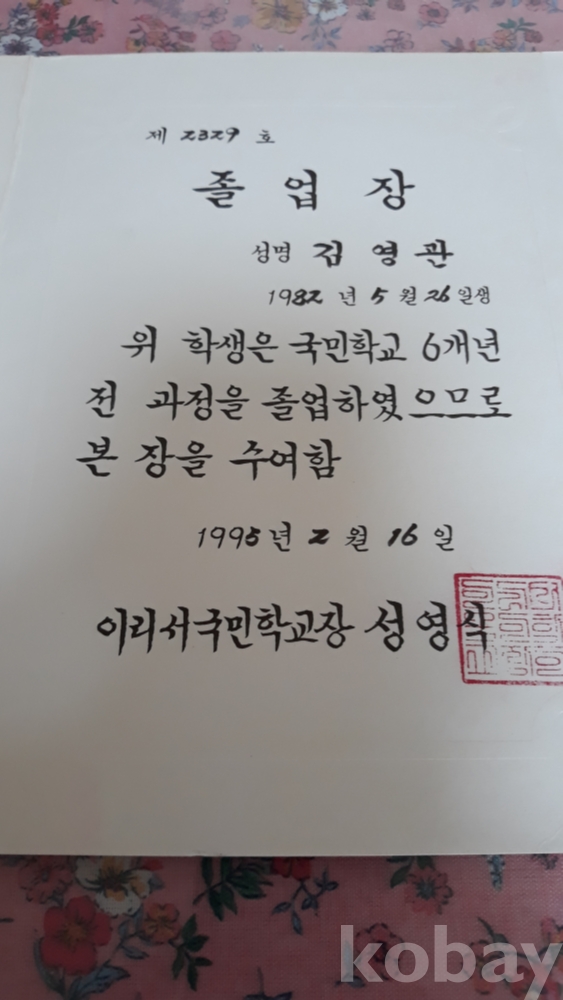 제 2329 호
졸 업 장
성명 김 영 관
1982 년 5 월 26 일생
위 학생은 국민학교 6개년
전 과정을 졸업하였으므로
본 장을 수여함
1995년 2 월 16 일
이리서국민학교장 성영식
kobay